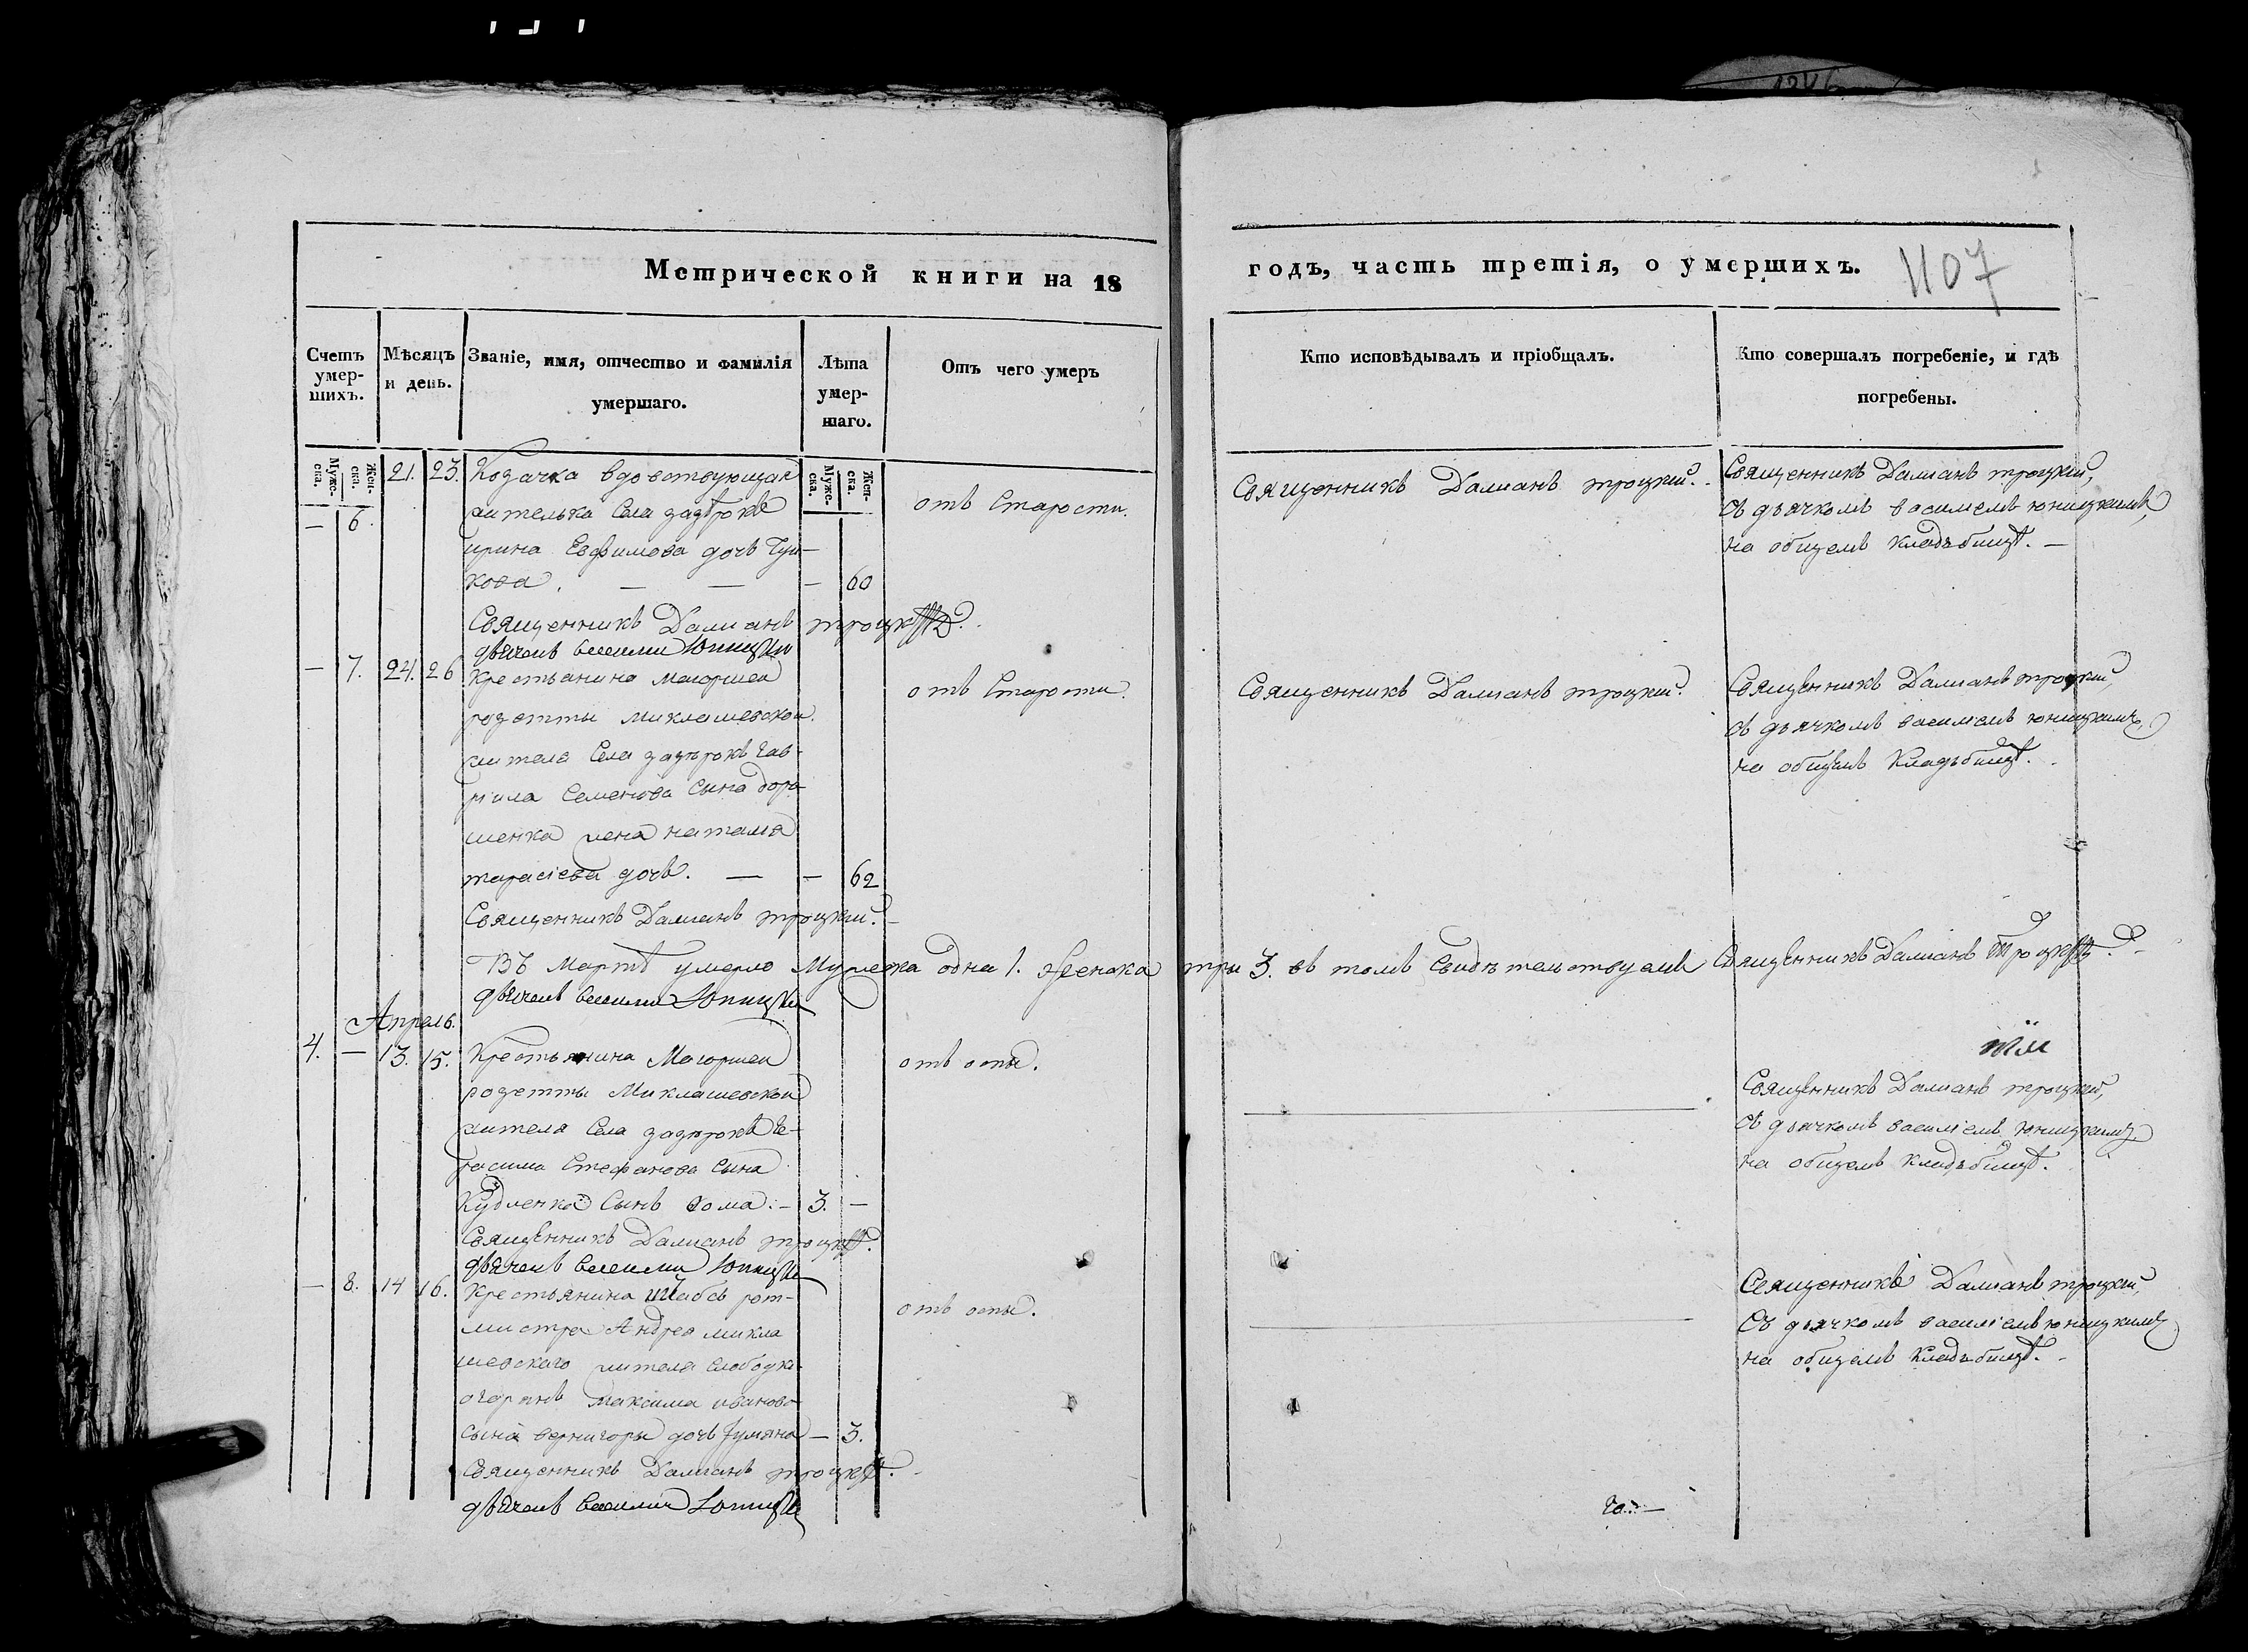 1246
Метрической книги на 18
годъ, часть третія, о умершихъ.
1107
Счетъ умер-шихъ.
Мѣсяцъ и день.
Званіе, имя, отчество и фамилія умершаго.
Лѣта умер-шаго.
Отъ чего умеръ
Кто исповѣдывалъ и пріобщалъ.
Кто совершалъ погребеніе, и гдѣ погребены.
Муже-ска.
Жен-ска.
Муже-ска.
Жен-ска.
— 6. 21. 23. Козачка вдовствующая
жителька Села зазѣрокъ
ирина Евфимова дочь
кова. — — — 60
отъ Старости.
Священникъ Даміанъ троцкій.
Священникъ Даміанъ троцкій,
съ дьячкомъ василіемъ юницкимъ,
на общемъ Кладьбищѣ. —
Священникъ Даміанъ троцкій.
дьячокъ василий Юницкий
— 7. 24. 26 Крестьянина маіорши
розетты миклашевской
жителя Села зазѣрокъ гав-
ріила Семенова Сына доро-
шенка жена наталія
тарасіева дочь. — — 62
отъ Старости.
Священникъ Даміанъ троцкій.
Священникъ Даміанъ троцкій,
съ дьячкомъ василіемъ юницкимъ,
на общемъ Кладьбищѣ.
Священникъ Даміанъ троцкій. —
Въ Мартѣ умерло Мужеска одна 1. Женска три 3. въ томъ Свидѣтельствуемъ Священникъ Даміанъ Троцкій. —
дьячокъ василий Юницкий
Апрель.
4. — 13. 15. Крестьянина Маіорши
розетты Миклашевской
жителя Села зазѣрокъ Ге-
расима Стефанова Сына
Кудленка Сынъ Фома. — 3. —
отъ оспы.
Священникъ Даміанъ троцкій,
съ дьячкомъ василіемъ юницкимъ
на общемъ кладьбищѣ.
Священникъ Даміанъ троцкій.
дьячокъ василий Юницкий
— 8. 14 16. Крестьянина Штабсъ рот-
мистра Андрея микла
шевскаго жителя слободки
максима иванова
Сына вернигоры дочь — 3.
отъ оспы.
Священникъ Даміанъ троцкій,
Съ дьячкомъ василіемъ юницкимъ
на общемъ кладьбищѣ. —
Священникъ Даміанъ троцкій. —
дьячокъ василий Юницкий